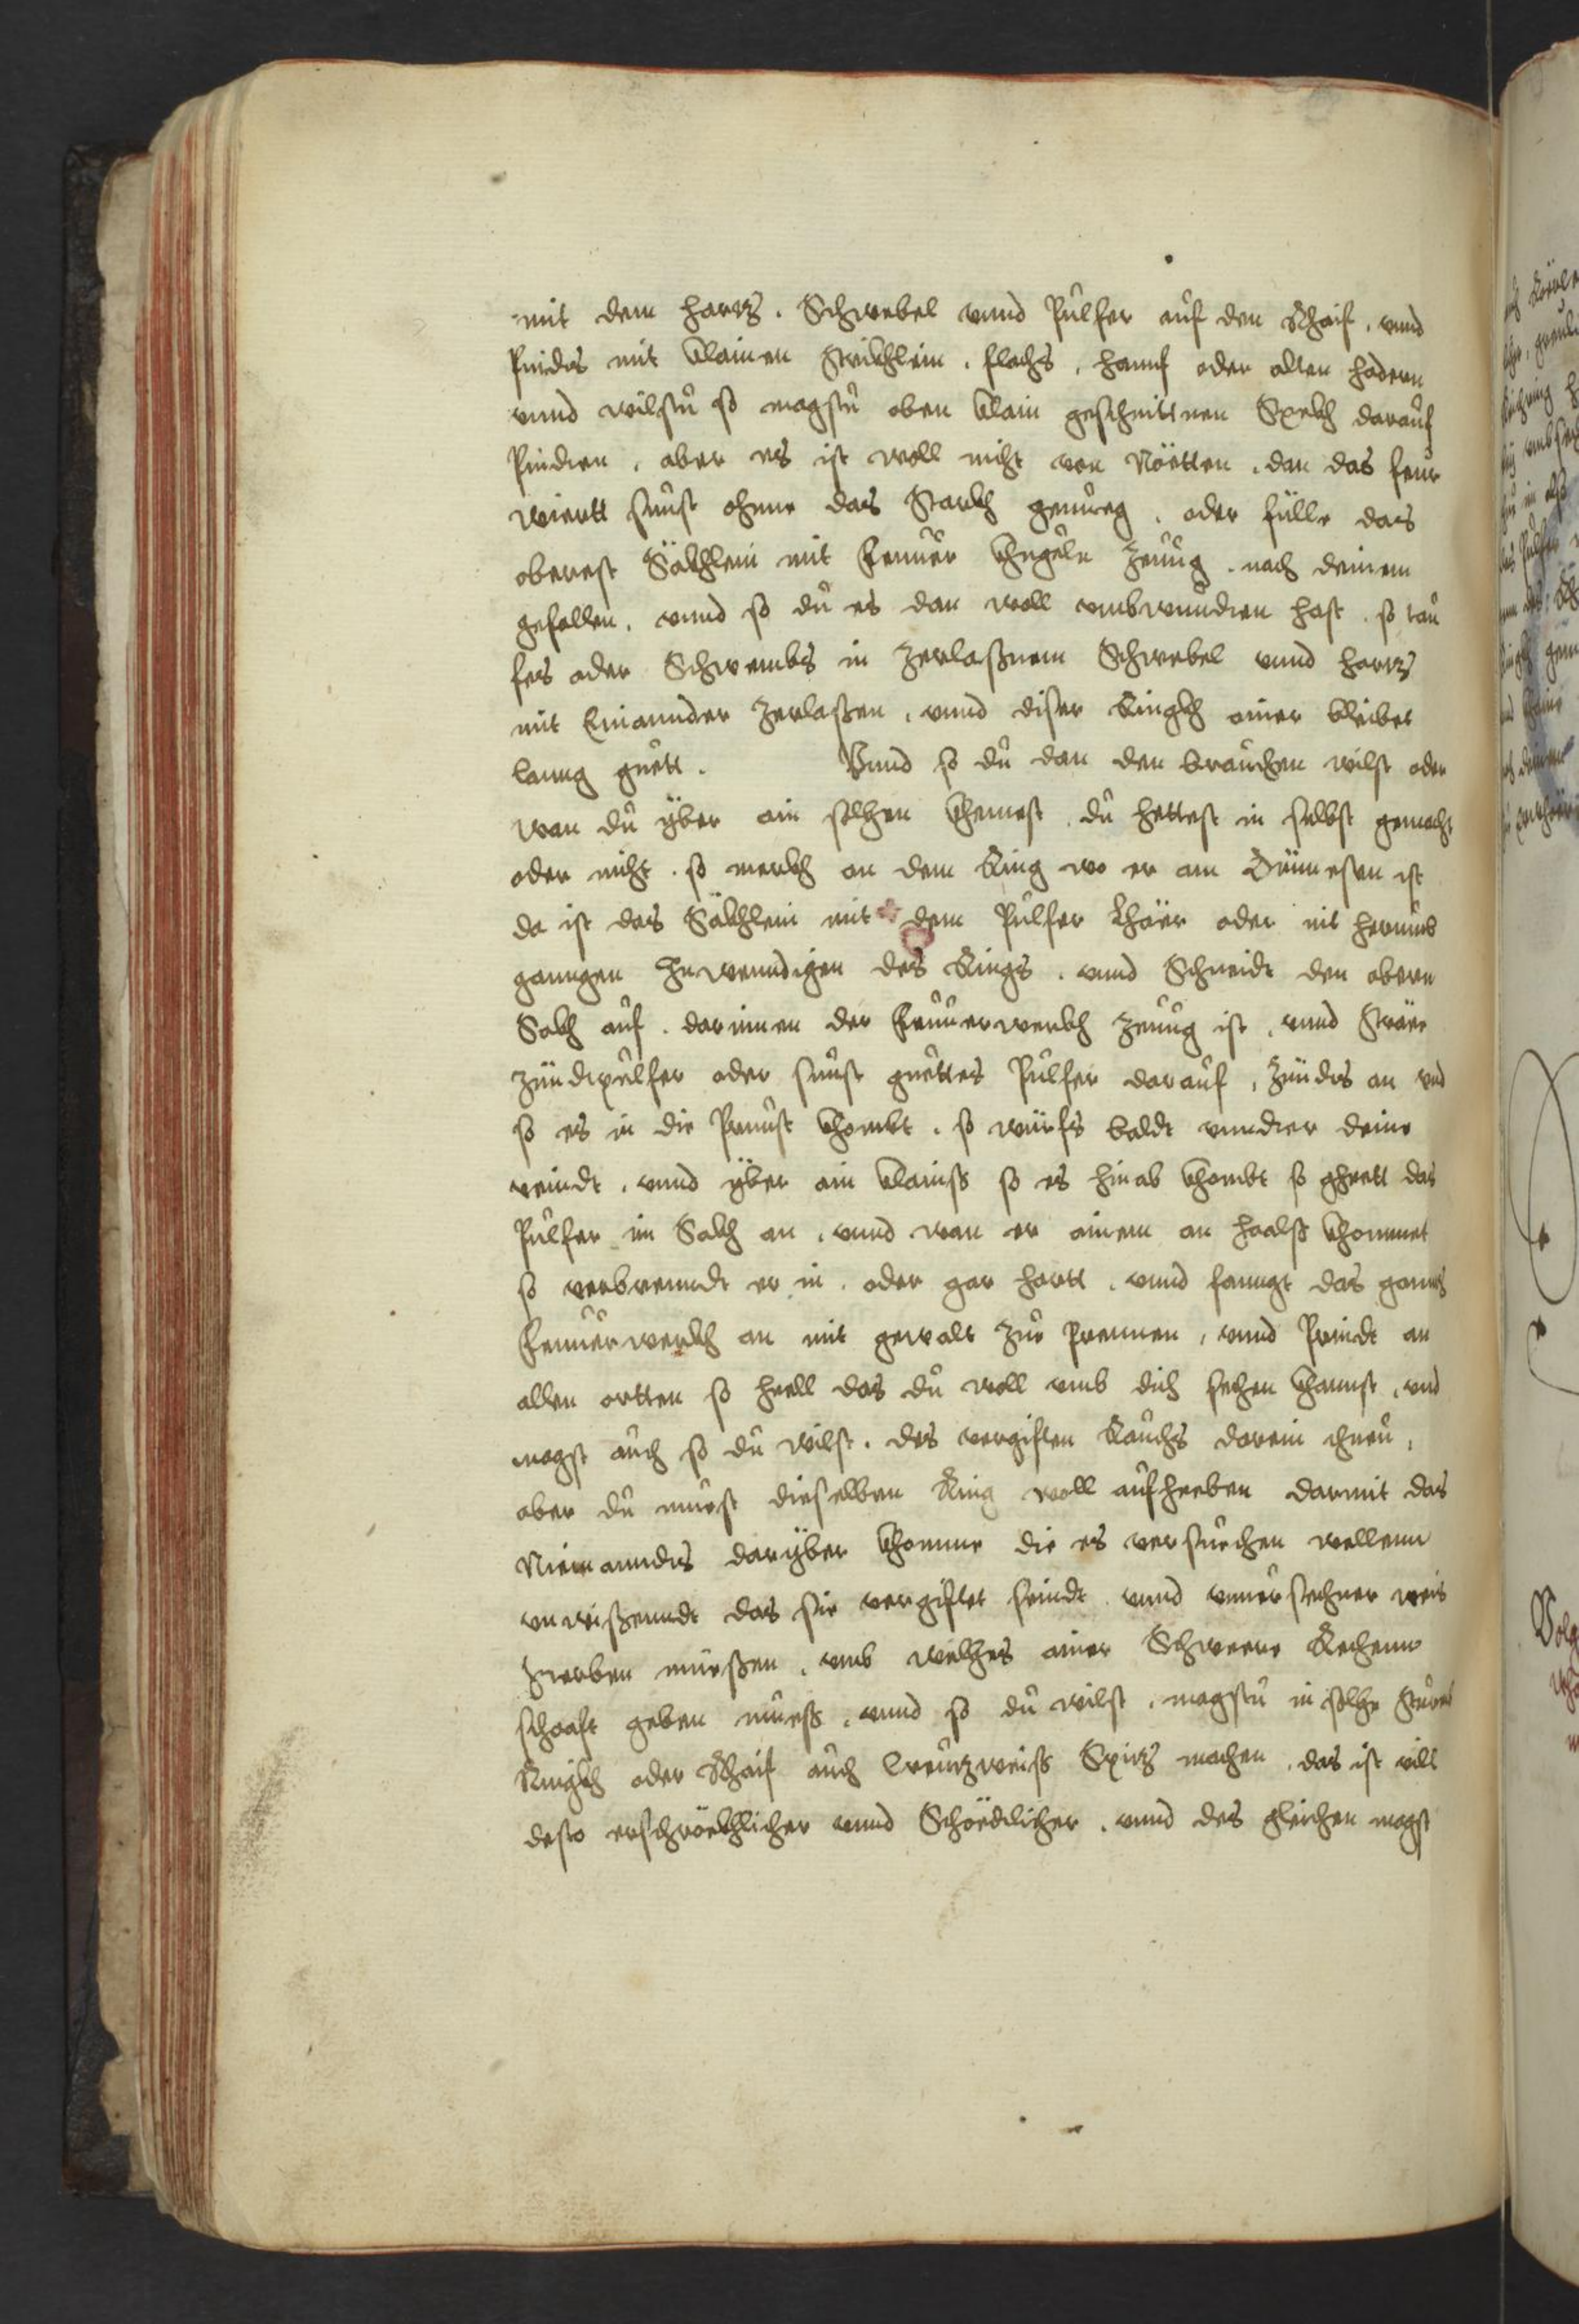 mit dem hartz. Schwebel vnnd Pulfer auf den Rhaif, vnnd
Pindts mit klainen Strikhlein, flachs, hanf oder alten hadern
vnnd wilstu so magstu oben klain geschnittnen Spekh darauf
Pindten, aber es ist woll nicht von Nötten, dan das feur
wiertt sunst ohnne das Starkh genueg, oder fülle das
oberest Säkhlein mit Feuuer Khugeln Zeuug, nach deinem
gefallen, vnnd so du es dan woll vmbwundten hast, so tau
fes oder Schwembs in Zerlaßnem Schwebel vnnd hartz
mit Einannder Zerlaßen, vnnd diser Ringkh ainer bleibet
lanng guett. Vnnd so du dan den brauchen wilst oder
wan du yber ain solhen khemest, du hettest in selbst gemacht
oder nicht, so merkh an dem Ring wo er am Dünnesten ist
da ist das Säkhlein mit dem Pulfer Lhäer oder nit herumb
ganngen Inwenndigen des Rings, vnnd Schneidt den obern
Sakh auf, darinnen der Feuuerwerkh Zeuug ist, vnnd Sträe
Zündtpulfer oder sunst guettes Pulfer darauf, Zündts an vnd
so es in die Prunst khombt, so würfs baldt vnndter deine
veindt, vnnd yber ain klainß so es hinab khombt so ghett das
Pulfer im Sakh an, vnnd wan er ainem an halß khommet
so verbrenndt er in, oder gar hartt, vnnd fanngt das gannz
Feuuerwerkh an mit gewalt Zue Prennen, vnnd Prindt an
allen ortten so hell das du woll vmb dich sechen khannst, vnd
magst auch so du wilst, des vergiften Rauchs darein thuen,
aber du muest dieselben Ring woll aufheeben darmit das
Niemanndts daryber khomme die es versuechen wellenn
vnwißenndt das sie vergiftet seindt vnnd vnnersechner weis
sterben müeßen, vmb welhes ainer Schweere Rechenn
schaft geben mueß, vnnd so du wilst, magstu in solhe Sturm
Ringkh oder Rhaif auch Creutzweiß Spitz machen, das ist vill
desto erschrökhlicher vnnd Schedlicher, vnnd des gleichen magst